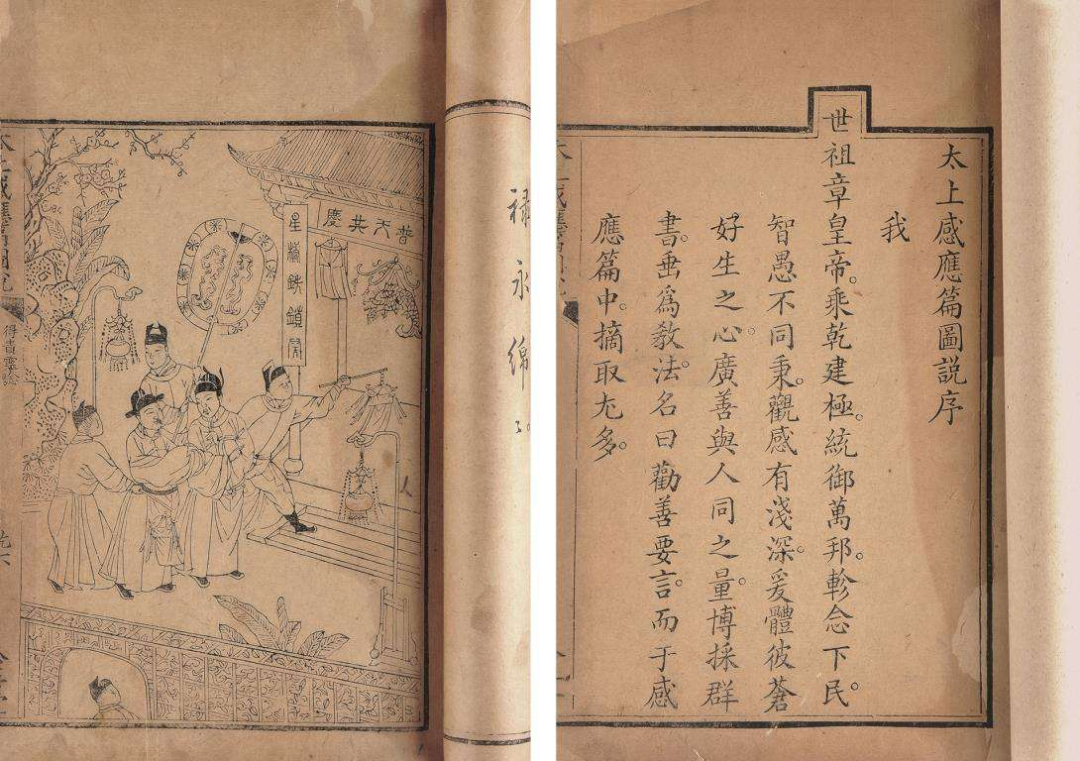 太上感應篇圖説序
我
世祖章皇帝。乘乾建極。統御萬邦。軫念下民。
智愚不同秉。觀感有淺深。爰體彼蒼
好生之心。廣善與人同之量。博採群
書。垂爲教法。名曰勸善要言。而于感
應篇中。摘取尤多。
祿永綿
普天共慶
星橋鉄鎖開